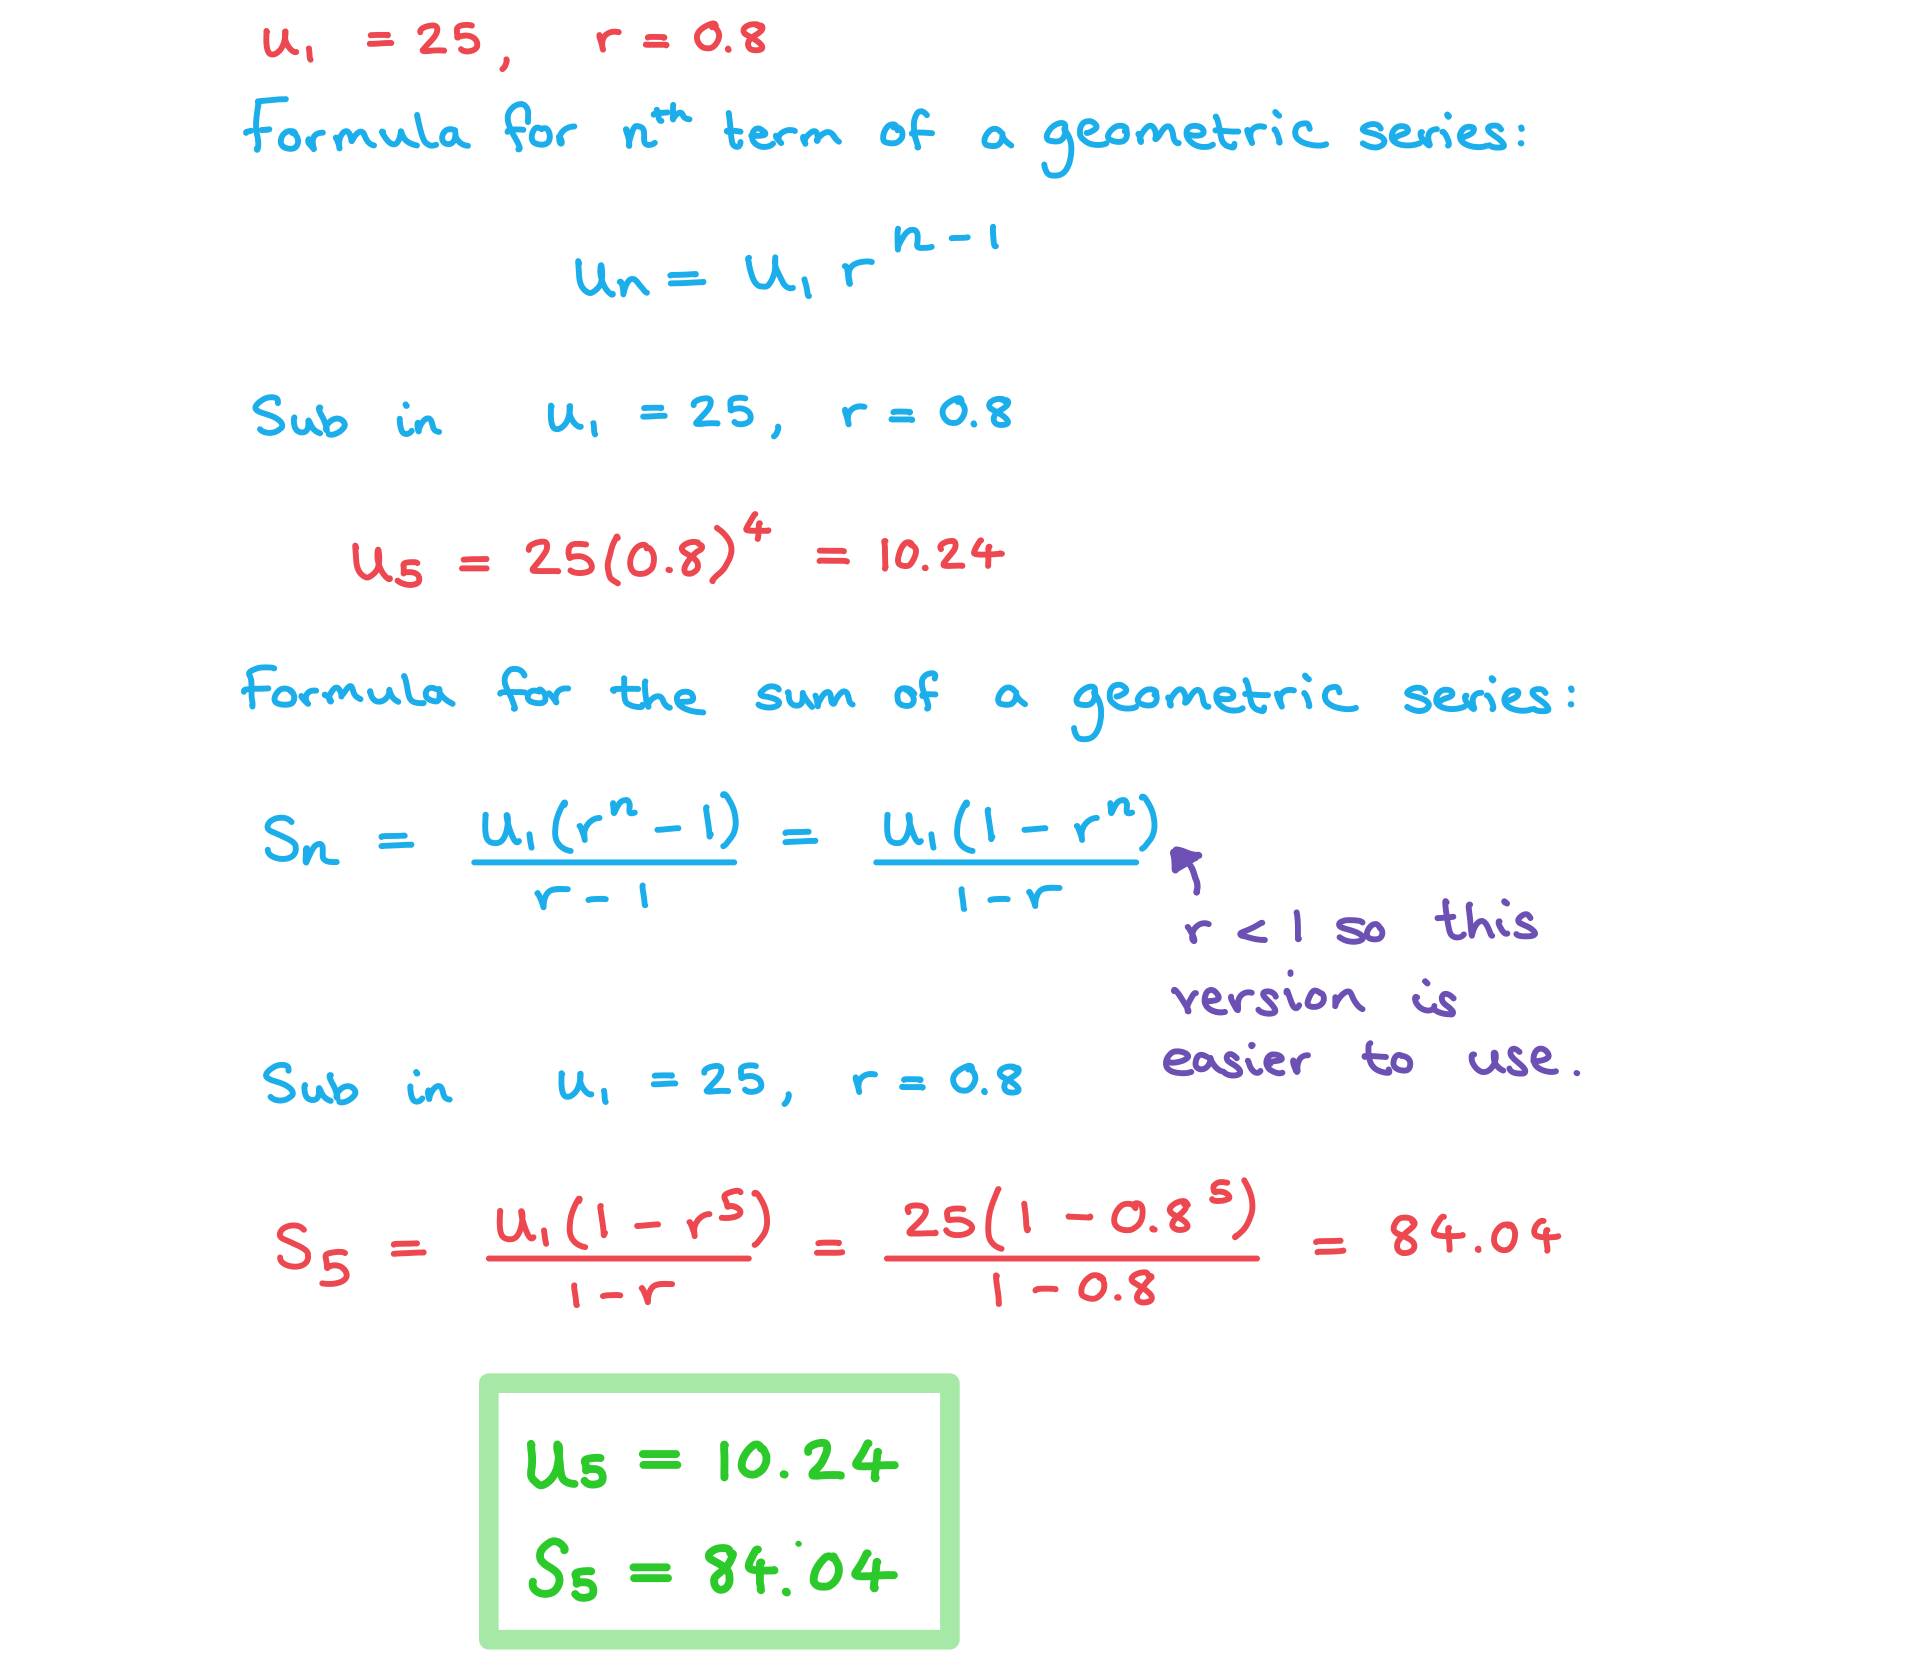 u₁ = 25, r = 0.8
Formula for nᵗʰ term of a geometric series:
uₙ = u₁ r^(n-1)
Sub in u₁ = 25, r = 0.8
u₅ = 25(0.8)⁴ = 10.24
Formula for the sum of a geometric series:
Sₙ = u₁(rⁿ - 1)/(r - 1) = u₁(1 - rⁿ)/(1 - r)
r < 1 so this
version is
easier to use.
Sub in u₁ = 25, r = 0.8
S₅ = u₁(1 - r⁵)/(1 - r) = 25(1 - 0.8⁵)/(1 - 0.8) = 84.04
u₅ = 10.24
S₅ = 84.04